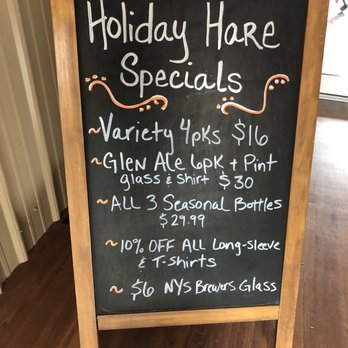 Holiday Hare
Specials
~Variety 4pks $16
~Glen Ale 6pk + Pint
glass & Shirt $30
~ALL 3 Seasonal Bottles
$29.99
~10% OFF ALL Long-sleeve
& T-Shirts
~ $6 NYS Brewers Glass